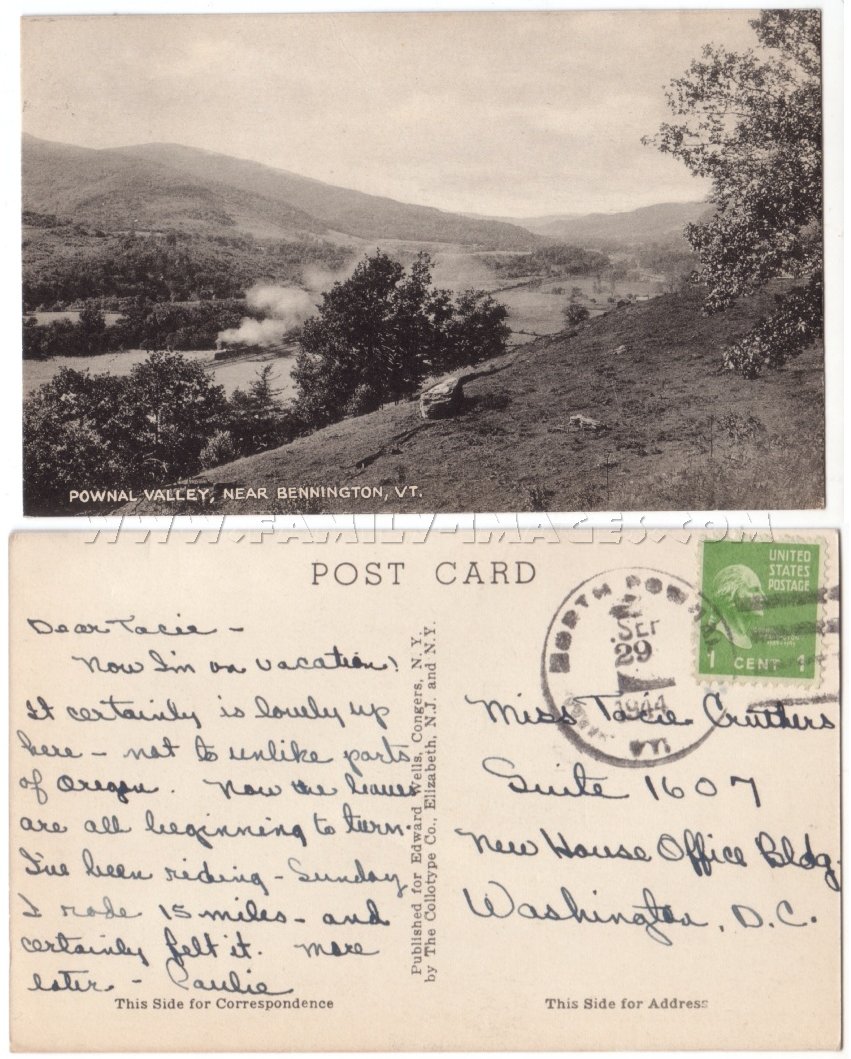 POWNAL VALLEY, NEAR BENNINGTON, VT.
WWW.FAMILY-IMAGES.COM
POST CARD
Dear Tacie -
Now I'm on vacation!
It certainly is lovely up
here - not to unlike parts
of Oregon. Now the leaves
are all beginning to turn.
I've been riding - Sunday
I rode 15 miles - and
certainly felt it. More
later - Paulie
This Side for Correspondence
Published for Edward Wells, Congers, N. Y.
by The Collotype Co., Elizabeth, N.J. and N.Y.
UNITED
STATES
POSTAGE
1 CENT 1
NORTH POWNAL
SEP
29
1944
Miss Tacie Cruthers
Suite 1607
New House Office Bldg.
Washington, D.C.
This Side for Address